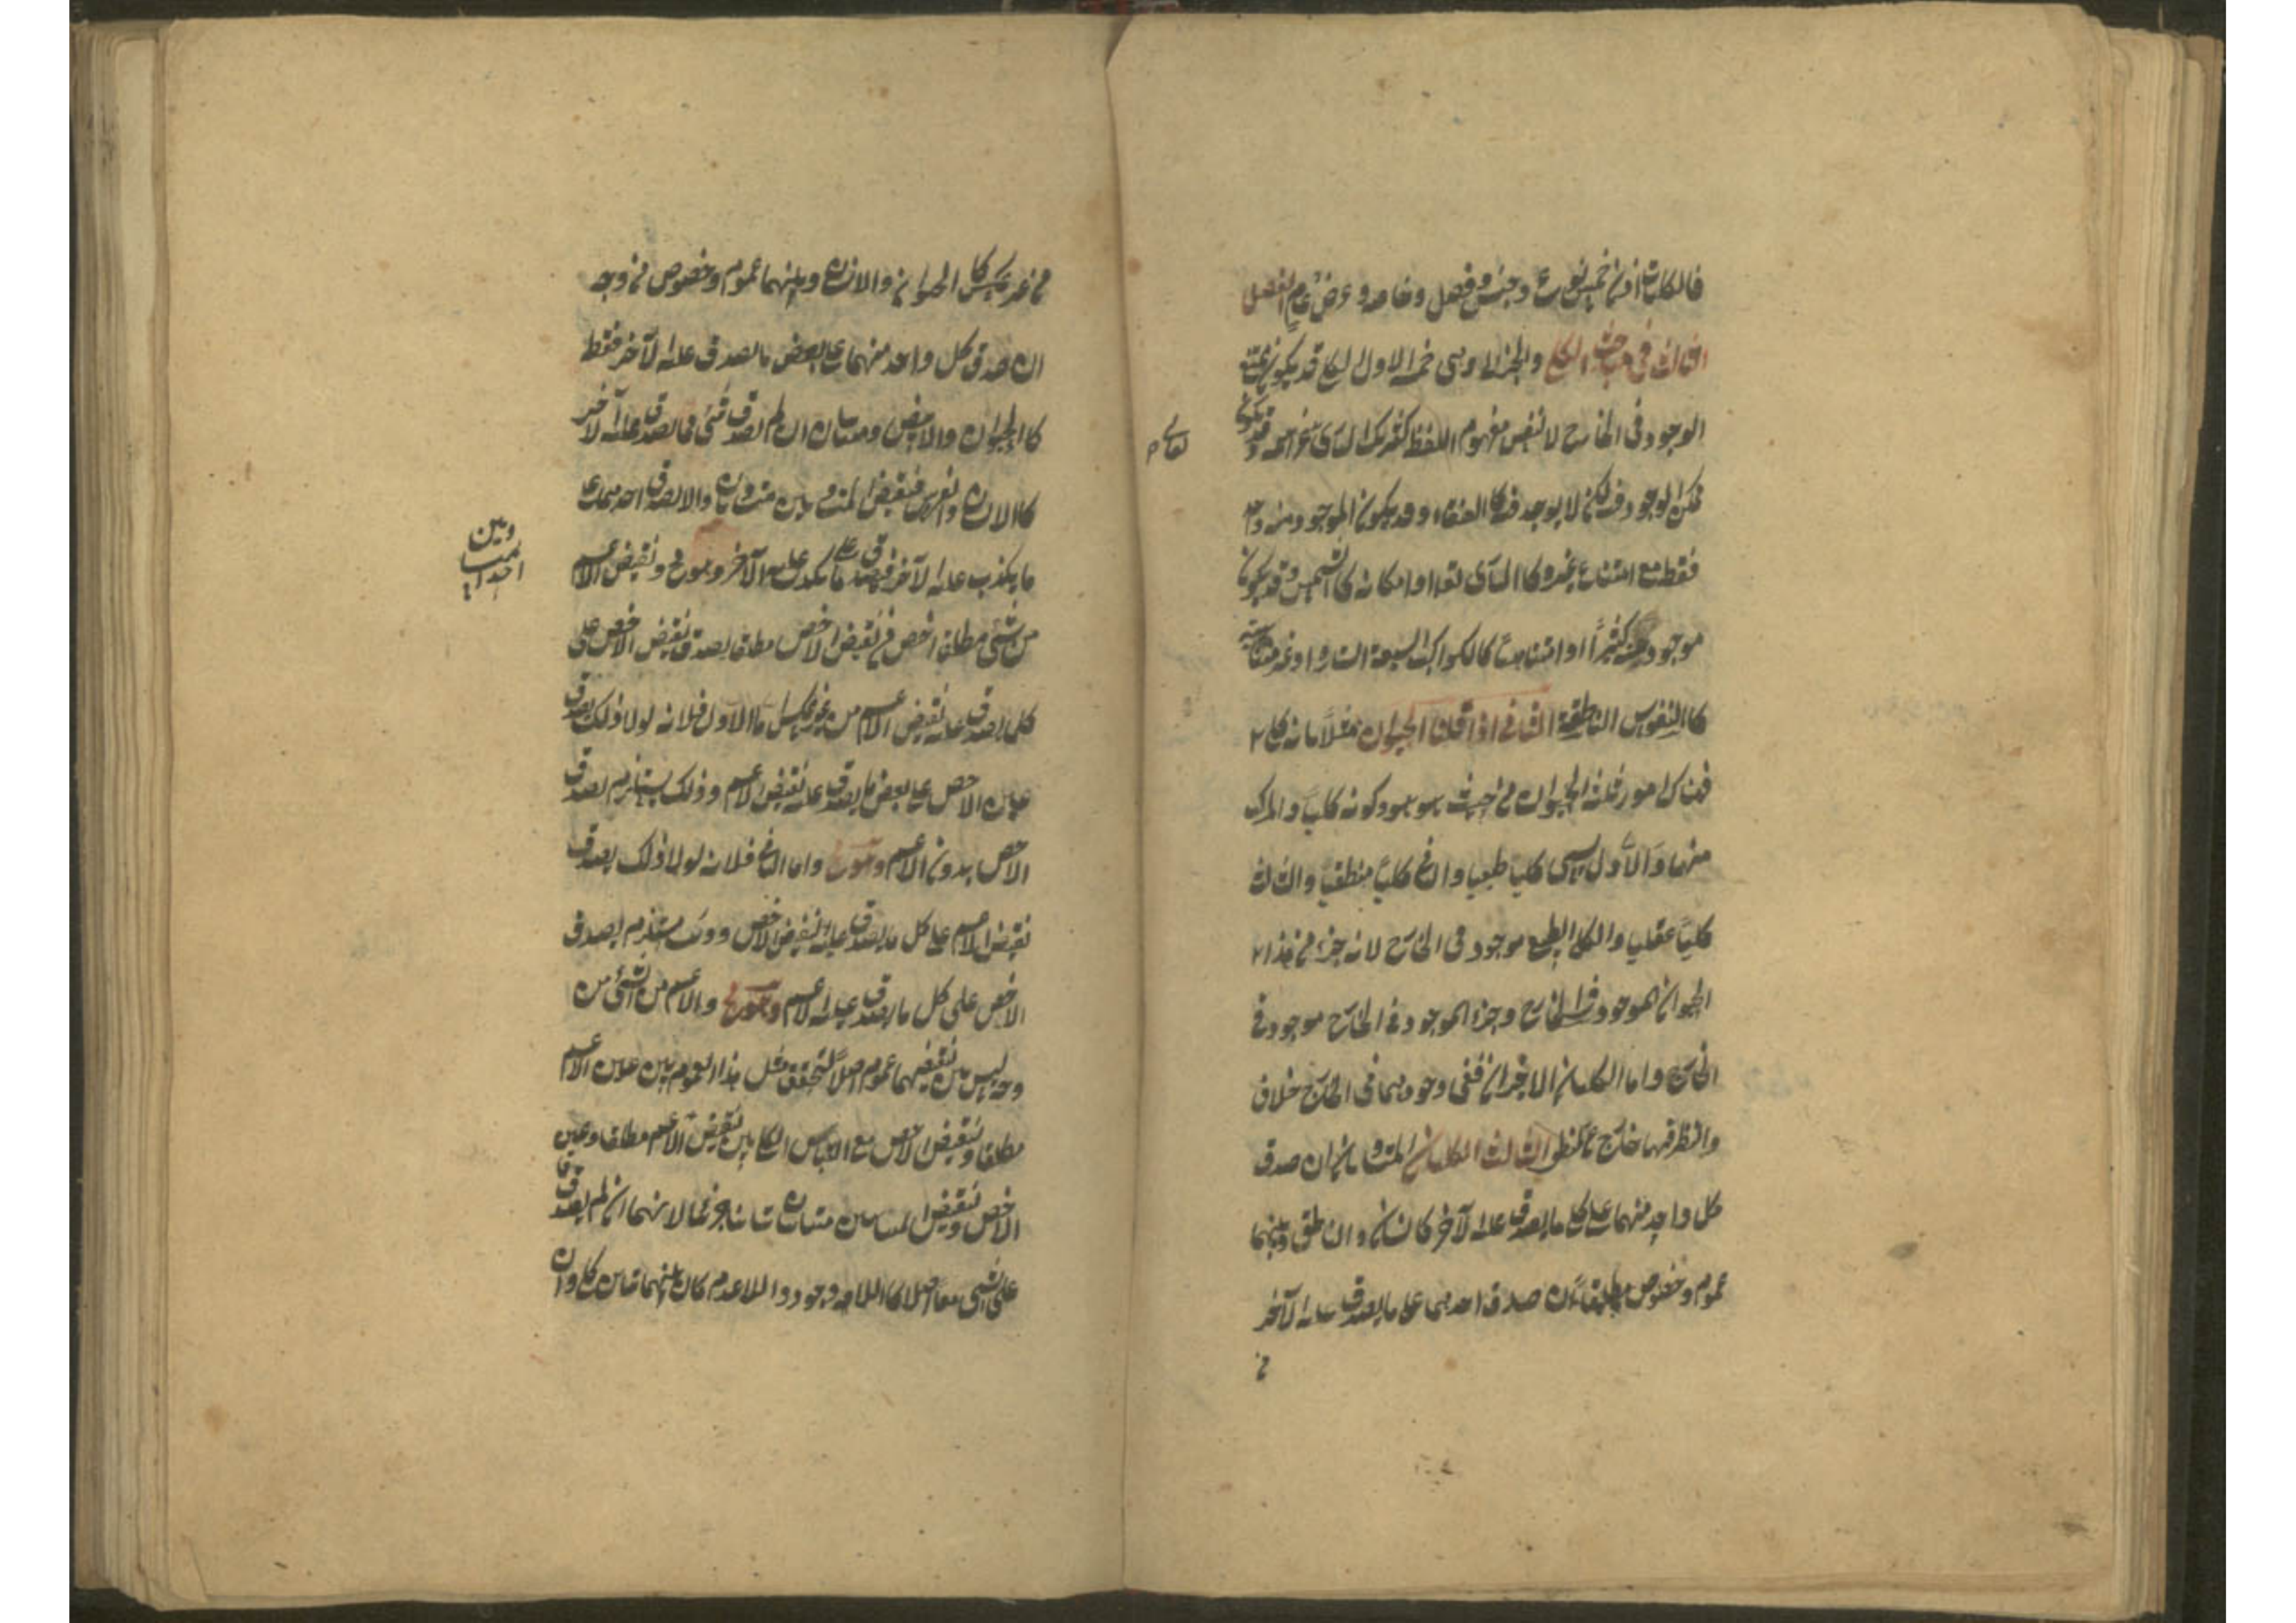 فالكليات اذن خمس نوع وجنس وفصل وخاصة وعرض عام الفصل
الثالث في مباحث الكلي والجزئي وهي خمسة الاول الكلي قد يكون ممتنع
الوجود في الخارج لا لنفس مفهوم اللفظ كشريك الباري عز اسمه وقد يكون
ممكن الوجود ولكن لا يوجد كالعنقاء وقد يكون الموجود منه واحد
فقط مع امتناع غيره كالباري تعالى او امكانه كالشمس وقد يكون
موجود منه كثيراً او متناهياً كالكواكب السبعة السيارة او غير متناهية
كالنفوس الناطقة الثاني اذا قلنا الحيوان مثلاً بانه كلي
فهناك امور ثلثة الحيوان من حيث هو هو وكونه كلياً والمركب
منهما والاول يسمى كلياً طبيعياً والثاني كلياً منطقياً والثالث
كلياً عقلياً والكلي الطبيعي موجود في الخارج لانه جزء من هذا
الحيوان الموجود في الخارج وجزء الموجود في الخارج موجود في
الخارج واما الكليان الاخيران ففي وجودهما في الخارج خلاف
والنظر فيهما خارج عن المنطق الثالث الكليان المتساويان ان صدق
كل واحد منهما على كل ما يصدق عليه الآخر كالانسان والناطق وبينهما
عموم وخصوص مطلقاً ان صدق احدهما على ما يصدق عليه الآخر
من
تعالى
من غير عكس كالحيوان والانسان وبينهما عموم وخصوص من وجه
ان صدق كل واحد منهما على بعض ما يصدق عليه الآخر فقط
كالحيوان والابيض ومتباينان ان لم يصدق شيء مما يصدق عليه الآخر
كالانسان والفرس فنقيضا المتساويين متساويان والا لصدق احدهما على
ما يكذب عليه الآخر فيصدق على ما يكذب عليه الآخر وهو مح ونقيض الاعم
من شيء مطلقا اخص من نقيض الاخص مطلقا يصدق نقيض الاخص على
كل ما يصدق عليه نقيض الاعم من غير عكس اما الاول فلانه لولا ذلك لصدق
عين الاخص على بعض ما يصدق عليه نقيض الاعم وذلك يستلزم لصدق
الاخص بدون الاعم وهو مح واما الثاني فلانه لولا ذلك لصدق
نقيض الاعم على كل ما يصدق عليه نقيض الاخص وذلك مستلزم لصدق
الاخص على كل ما يصدق عليه الاعم وهو مح والاعم من الشيء من
وجه ليس بين نقيضيهما عموم اصلاً لتحقق مثل هذا العموم بين عين الاعم
مطلقا ونقيض الاخص مع التباين الكلي بين نقيض الاعم مطلقا وعين
الاخص ونقيضا المتباينين متباينان تبايناً جزئياً لانهما ان لم يصدقا
على شيء معاً اصلا كاللاوجود واللاعدم كان بينهما تباين كلي وان
وبين